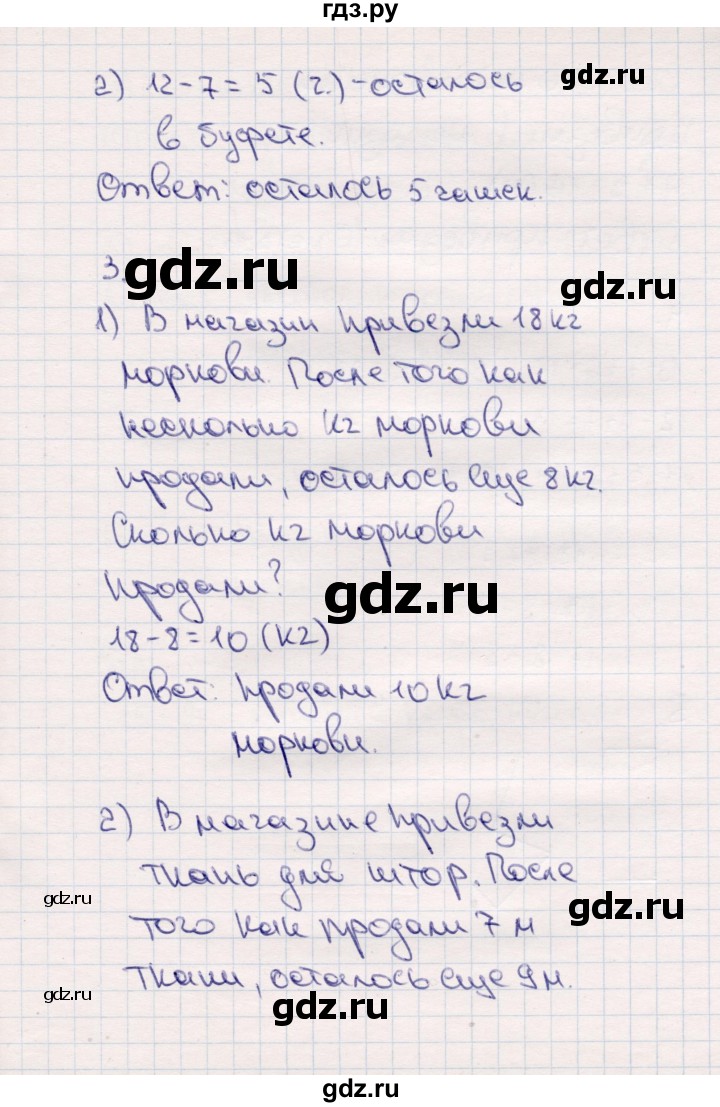 гдз.ру
2) 12-7=5 (ч.) - осталось
gdz.ru
в буфете.
Ответ: осталось 5 чашек.
gdz.ru
3.
gdz.ru
1) В магазин привезли 18 кг
моркови. После того как
несколько кг моркови
gdz.ru
продали, осталось еще 8 кг.
Сколько кг моркови
продали?
gdz.ru
18-8=10 (кг)
Ответ: продали 10 кг
моркови.
gdz.ru
2) В магазине привезли
ткань для штор. После
gdz.ru
gdz.ru
того как продали 7 м
ткани, осталось еще 9 м.
gdz.ru
gdz.ru
gdz.ru